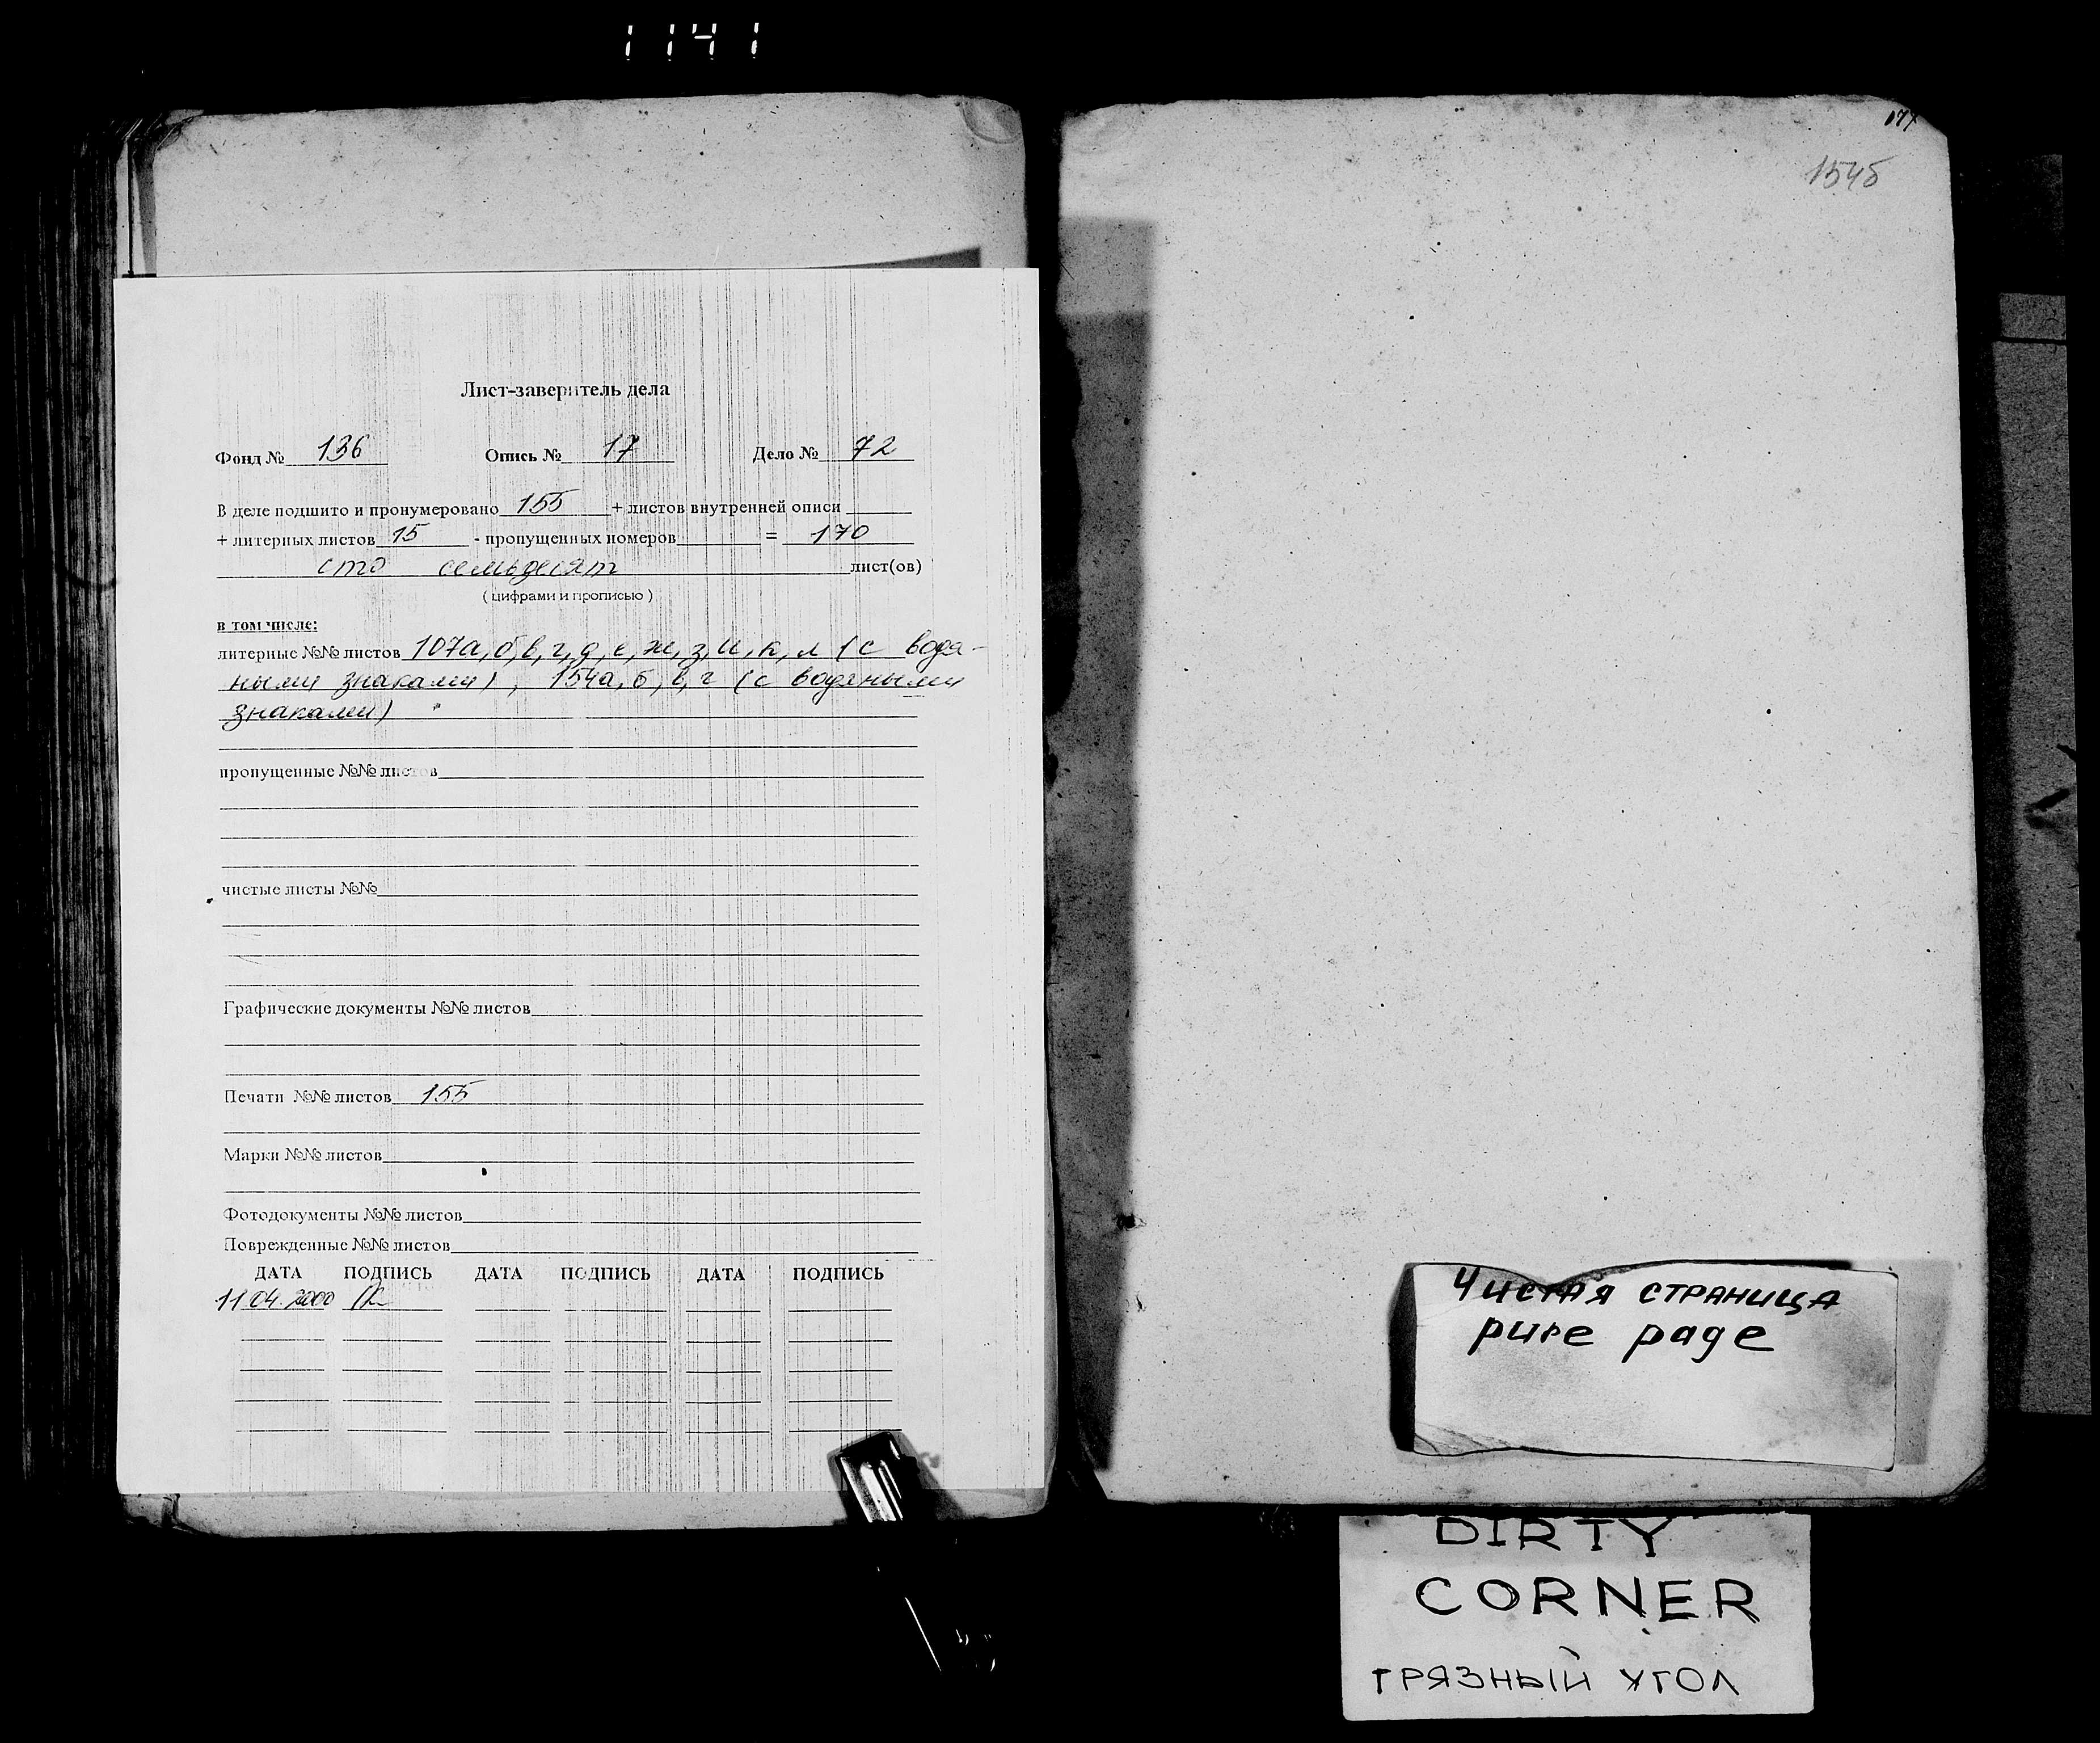 1141
Лист-заверитель дела
Фонд № 136 Опись № 17 Дело № 72
В деле подшито и пронумеровано 155 + листов внутренней описи
+ литерных листов 15 - пропущенных номеров = 170
сто семьдесят лист(ов)
( цифрами и прописью )
в том числе:
литерные №№ листов 107а, б, в, г, д, е, ж, з, и, к, л (с водя-
ными знаками), 154а, б, в, г (с водяными
знаками)
пропущенные №№ листов
чистые листы №№
Графические документы №№ листов
Печати №№ листов 155
Марки №№ листов
Фотодокументы №№ листов
Поврежденные №№ листов
ДАТА ПОДПИСЬ ДАТА ПОДПИСЬ ДАТА ПОДПИСЬ
11.04.2000
154б
Чистая страница
pure page
DIRTY
CORNER
ГРЯЗНЫЙ УГОЛ